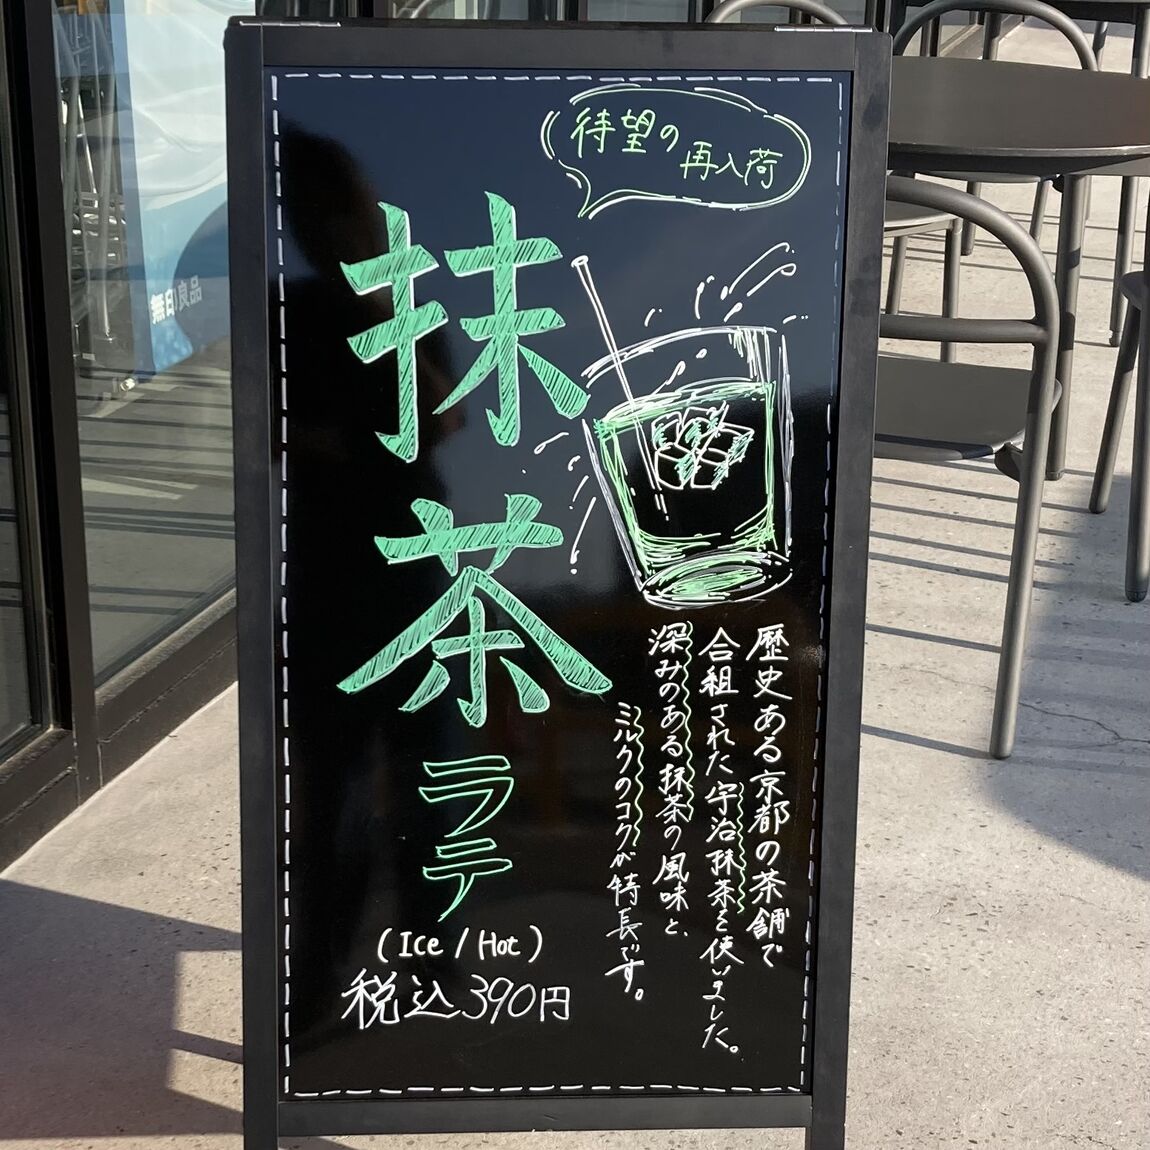 待望の
再入荷
抹茶ラテ
(Ice / Hot)
税込390円
歴史ある京都の茶舗で
合組された宇治抹茶を使いました。
深みのある抹茶の風味と、
ミルクのコクが特長です。
無印良品